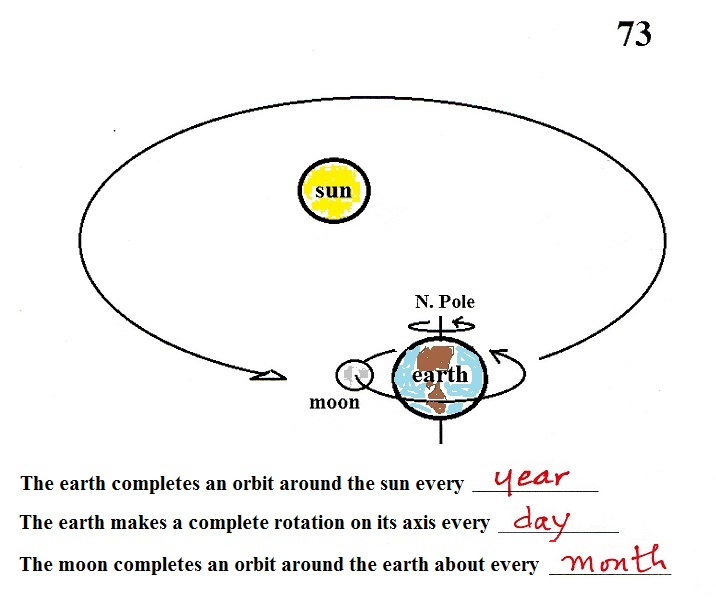 73
sun
N. Pole
earth
moon
The earth completes an orbit around the sun every year
The earth makes a complete rotation on its axis every day
The moon completes an orbit around the earth about every month